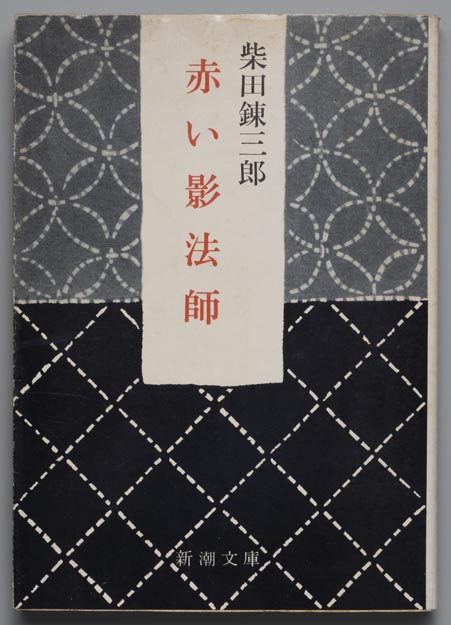 柴田錬三郎
赤い影法師
新潮文庫